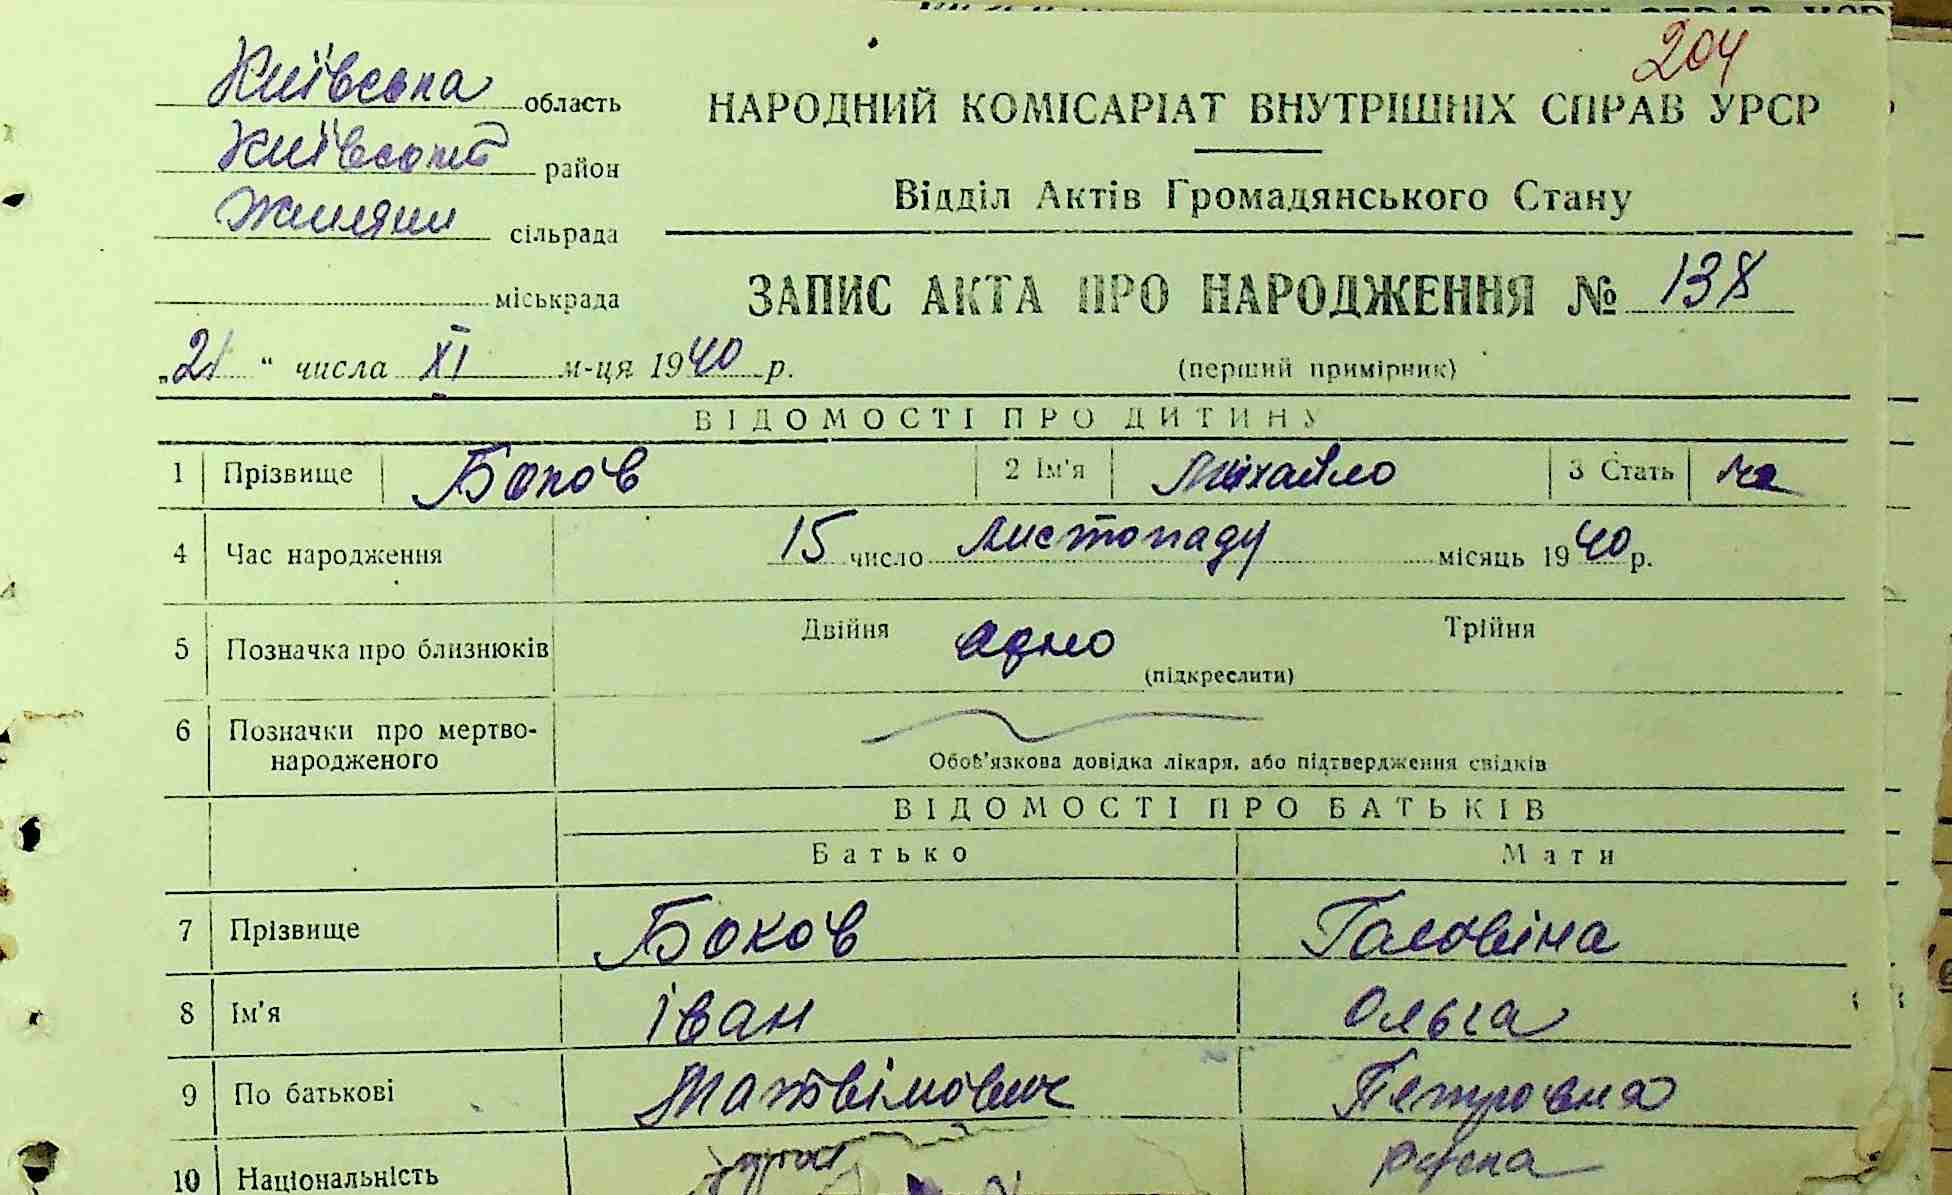 204
Київська область
Київський район
Жиляни сільрада
міськрада
НАРОДНИЙ КОМІСАРІАТ ВНУТРІШНІХ СПРАВ УРСР
Відділ Актів Громадянського Стану
ЗАПИС АКТА ПРО НАРОДЖЕННЯ № 138
„21“ числа XI м-ця 1940 р.
(перший примірник)
ВІДОМОСТІ ПРО ДИТИНУ
1 Прізвище Боков 2 Ім'я Міхайло 3 Стать чо
4 Час народження 15 число листопаду місяць 1940 р.
5 Позначка про близнюків Двійня одно Трійня
(підкреслити)
6 Позначки про мертво-
народженого
Обов'язкова довідка лікаря, або підтвердження свідків
ВІДОМОСТІ ПРО БАТЬКІВ
Батько Мати
7 Прізвище Боков Головіна
8 Ім'я Іван Ольга
9 По батькові Матвійович Петровна
10 Національність руска